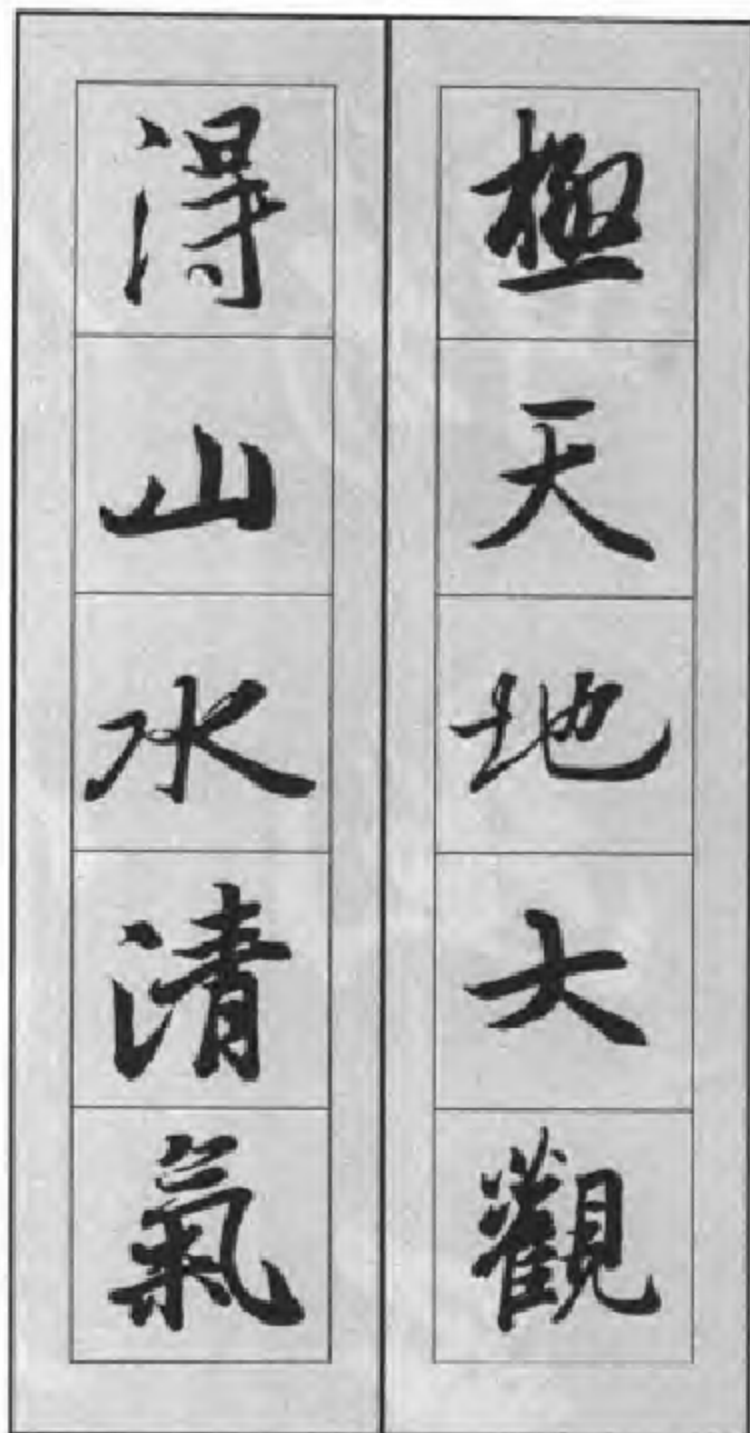 極天地大觀
得山水清氣